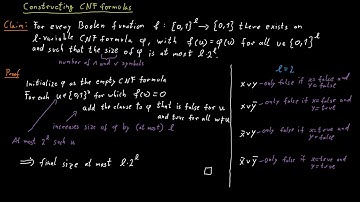 Constructing CNF formulas
Claim: For every Boolean function f : {0,1}^ℓ → {0,1} there exists an
ℓ-variable CNF formula φ, with f(u) = φ(u) for all u ∈ {0,1}^ℓ
and such that the size of φ is at most ℓ·2^ℓ
number of ∧ and ∨ symbols
Proof
Initialize φ as the empty CNF formula
For each u ∈ {0,1}^ℓ for which f(u) = 0
add the clause to φ that is false for u
and true for all w ≠ u
increases size of φ by (at most) ℓ
At most 2^ℓ such u
⟹ final size at most ℓ·2^ℓ
ℓ = 2
x ∨ y – only false if x = false and
y = false
x ∨ ȳ – only false if x = false and
y = true
x̄ ∨ y – only false if x = true and
y = false
x̄ ∨ ȳ – only false if x = true and
y = true